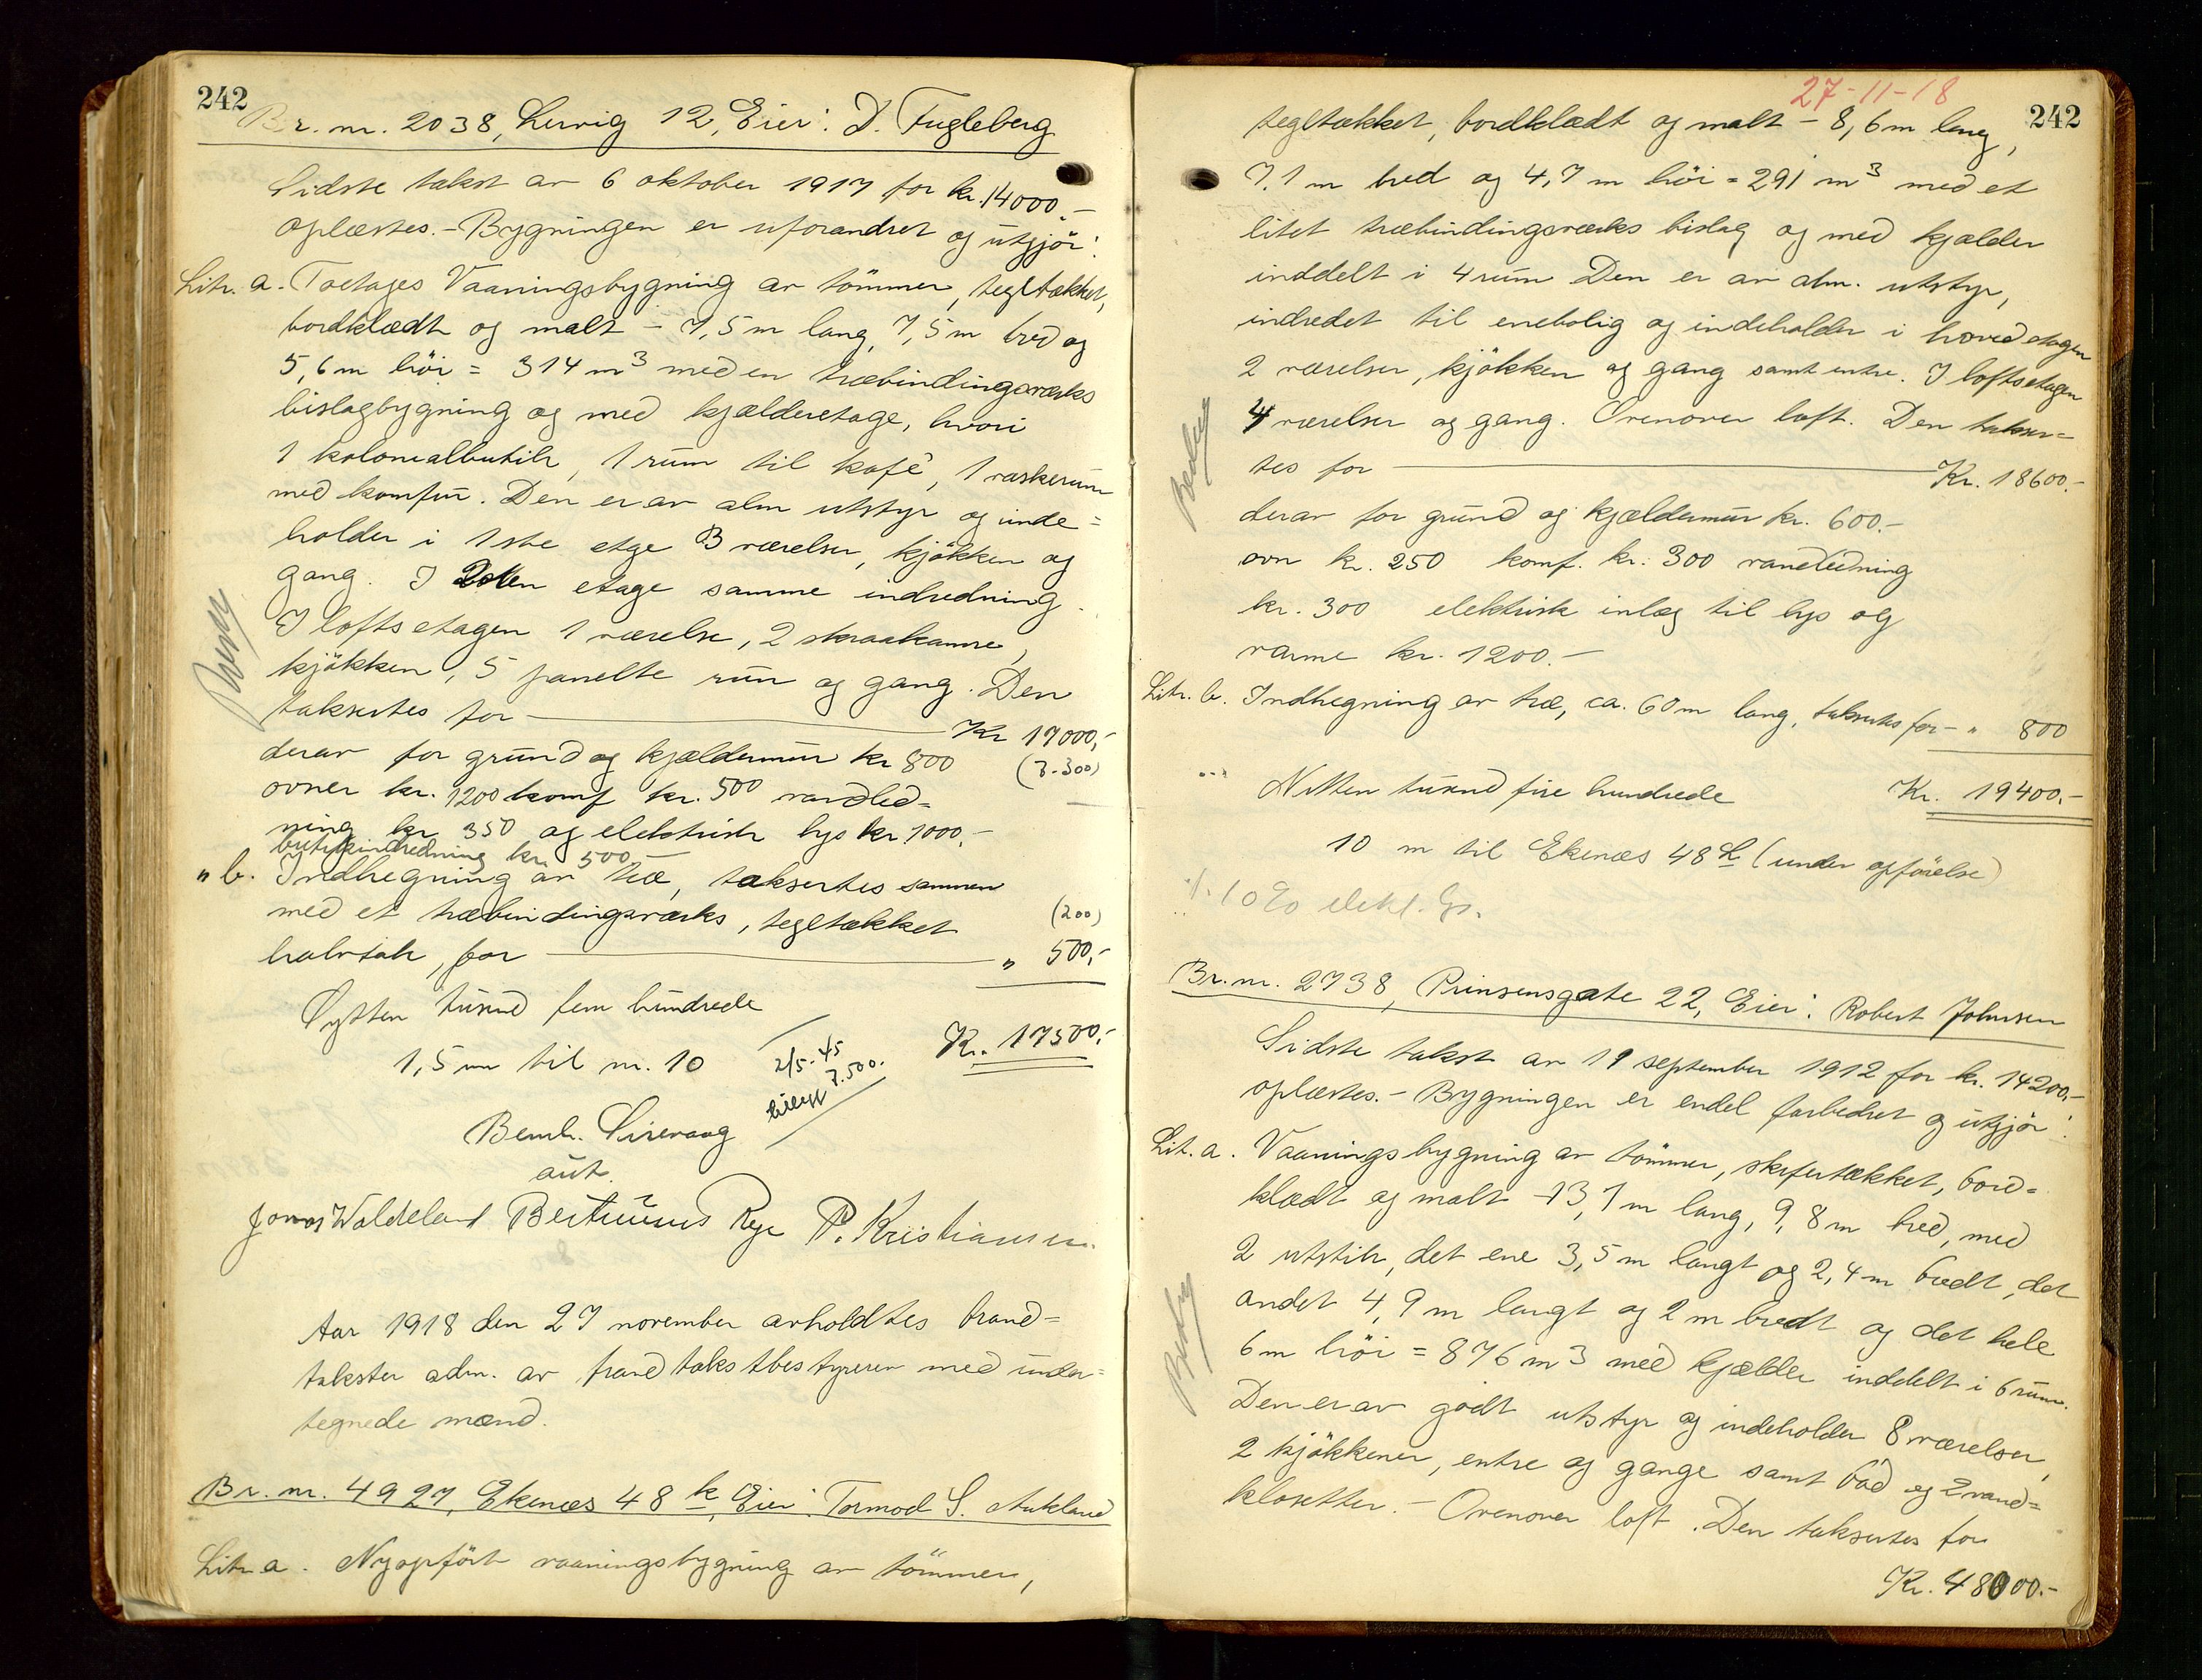 242
Br. nr. 2038, Lervig 12, Eier: D. Fugleberg
Sidste takst av 6 oktober 1917 for kr. 14000.-
oplæstes. - Bygningen er uforandret og utgjör:
Litr. a. Toetages Vaaningsbygning av tömmer, tegltækket,
bordklædt og malt - 7,5 m lang, 7,5 m bred og
5,6 m höi = 314 m3 med en træbindingsværks
bislagbygning og med kjælderetage, hvori
1 kolonialbutik, 1 rum til kafé, 1 vaskerum
med komfur. Den er av alm utstyr og inde=
holder i 1ste etge 3 værelser, kjökken og
gang. I 2den etage samme indredning.
I loftsetagen 1 værelse, 2 skraakamre,
kjökken, 5 panelte rum og gang. Den
taksertes for - Kr 17000,-
derav for grund og kjældermur kr 800 (7.300)
ovner kr. 1200 komf kr. 500 vandled=
ning kr 350 og elektrisk lys kr 1000.-
butikindredning kr 500.-
" b. Indhegning av træ, taksertes sammen
med et træbindingsværks, tegltækket (200)
halvtak, for - " 500,-
Sytten tusend fem hundrede
Kr. 17500.-
1,5 m til nr. 10
2/5-45
7.500.
Bernh. Sirevaag
aut.
Jonas Waldeland Bertinius Rege P. Kristiansen.
Aar 1918 den 27 november avholdtes brand=
takster adm. av brandtakstbestyreren med under=
tegnede mænd.
Br. nr. 4927, Ekenæs 48 k, Eier: Tormod S. Aukland
Litr. a. Nyopfört vaaningsbygning av tömmer,
27-11-18
242
tegltækket, bordklædt og malt - 8,6 m lang,
7,1 m bred og 4,7 m höi = 291 m3 med et
litet træbindingsværks bislag og med kjælder
inddelt i 4 rum Den er av alm. utstyr,
indredet til enebolig og indeholder i hovedetagen
2 værelser, kjökken og gang samt entre. I loftsetagen
4 værelser og gang. Ovenover loft. Den takser=
tes for - Kr. 18600.-
derav for grund og kjældermur kr. 600.-
ovn kr. 250 komf. kr. 300 vandledning
kr. 300 elektrisk inlæg til lys og
varme kr. 1200.-
Litr. b. Indhegning av træ, ca. 60 m lang, taksertes for - " 800
Nitten tusend fire hundrede Kr. 19400.-
10 m til Ekenæs 48 (under opförelse)
10% elekt. lys.
Br. nr. 2738, Prinsensgate 22, Eier: Robert Johnsen
Sidste takst av 19 september 1912 for kr. 14200.-
oplæstes. - Bygningen er endel forbedret og utgjör:
Lit. a. Vaaningsbygning av tömmer, skifertækket, bord=
klædt og malt - 13,1 m lang, 9,8 m bred, med
2 utstik, det ene 3,5 m langt og 2,4 m bredt, det
andet 4,9 m langt og 2 m bredt og det hele
6 m höi = 876 m3 med kjælder inddelt i 6 rum.
Den er av godt utstyr og indeholder 8 værelser,
2 kjökkener, entre og gange samt bad og 2 vand=
klosetter. - Ovenover loft. Den taksertes for
Kr. 48000.-